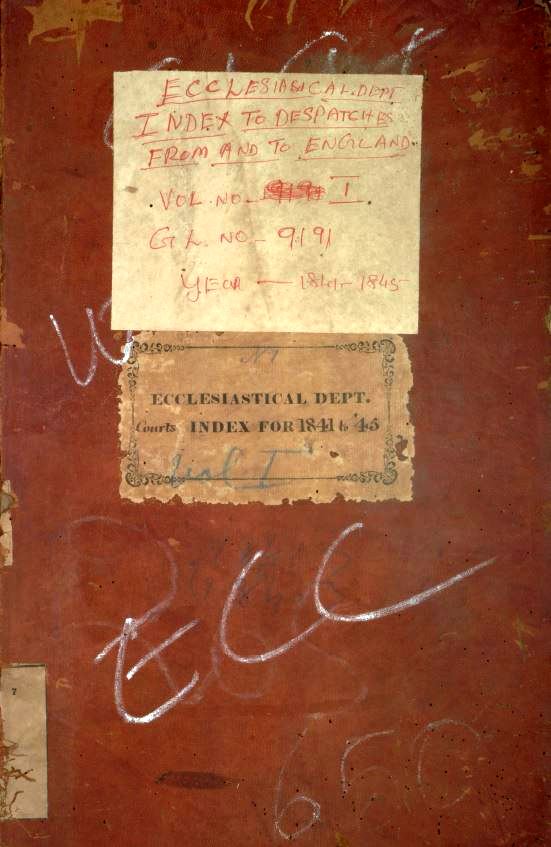 ECCLESIASICAL.DEPT
INDEX TO DESPATCHES
FROM AND TO ENGLAND.
VOL.NO- I
G L. NO - 9191
YEAR - 1841-1845
No 1
ECCLESIASTICAL DEPT.
Courts INDEX FOR 1841 to '45
Vol I
ECC
660
7